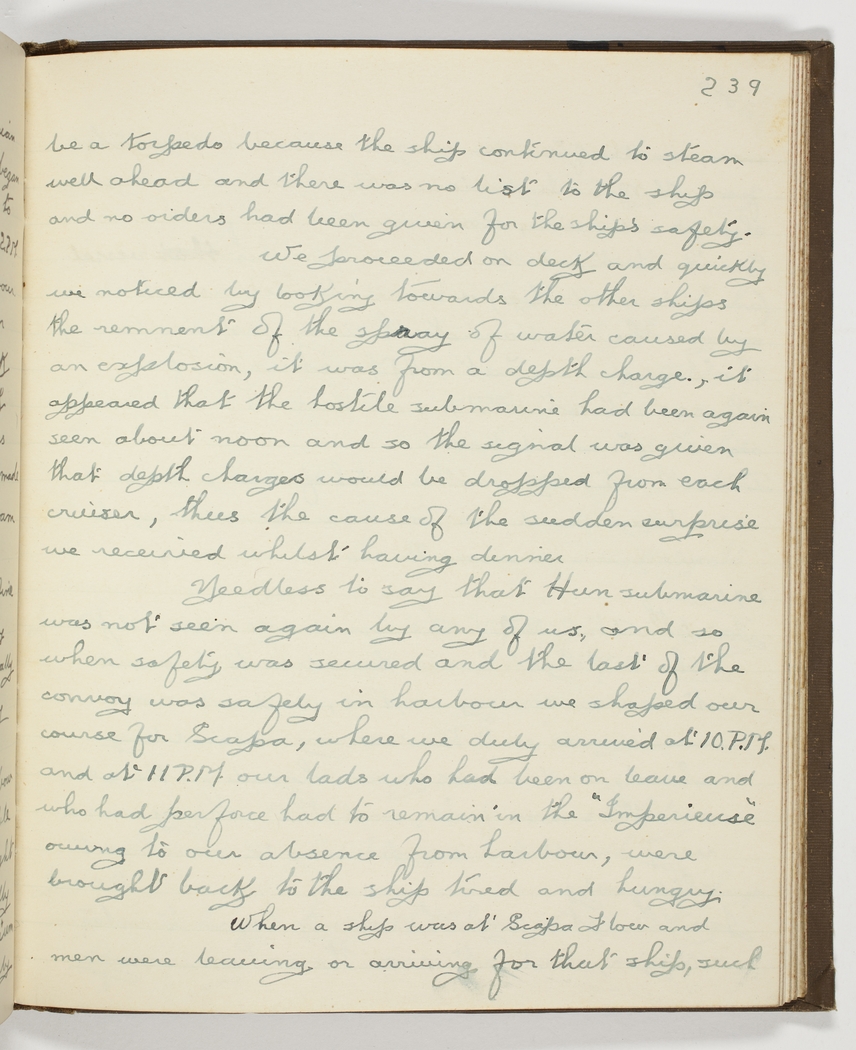 239
be a torpedo because the ship continued to steam
well ahead and there was no list to the ship
and no orders had been given for the ships safety.
We proceeded on deck and quickly
we noticed by looking towards the other ships
the remnent of the spray of water caused by
an explosion, it was from a depth charge., it
appeared that the hostile submarine had been again
seen about noon and so the signal was given
that depth charges would be dropped from each
cruiser, thus the cause of the sudden surprise
we received whilst having dinner
Needless to say that Hun submarine
was not seen again by any of us, and so
when safety was secured and the last of the
convoy was safely in harbour we shaped our
course for Scapa, where we duly arrived at 10.P.M.
and at 11 P.M our lads who had been on leave and
who had perforce had to remain in the "Imperieuse"
owing to our absence from harbour, were
brought back to the ship tired and hungry.
When a ship was at Scapa Flow and
men were leaving or arriving for that ship, such